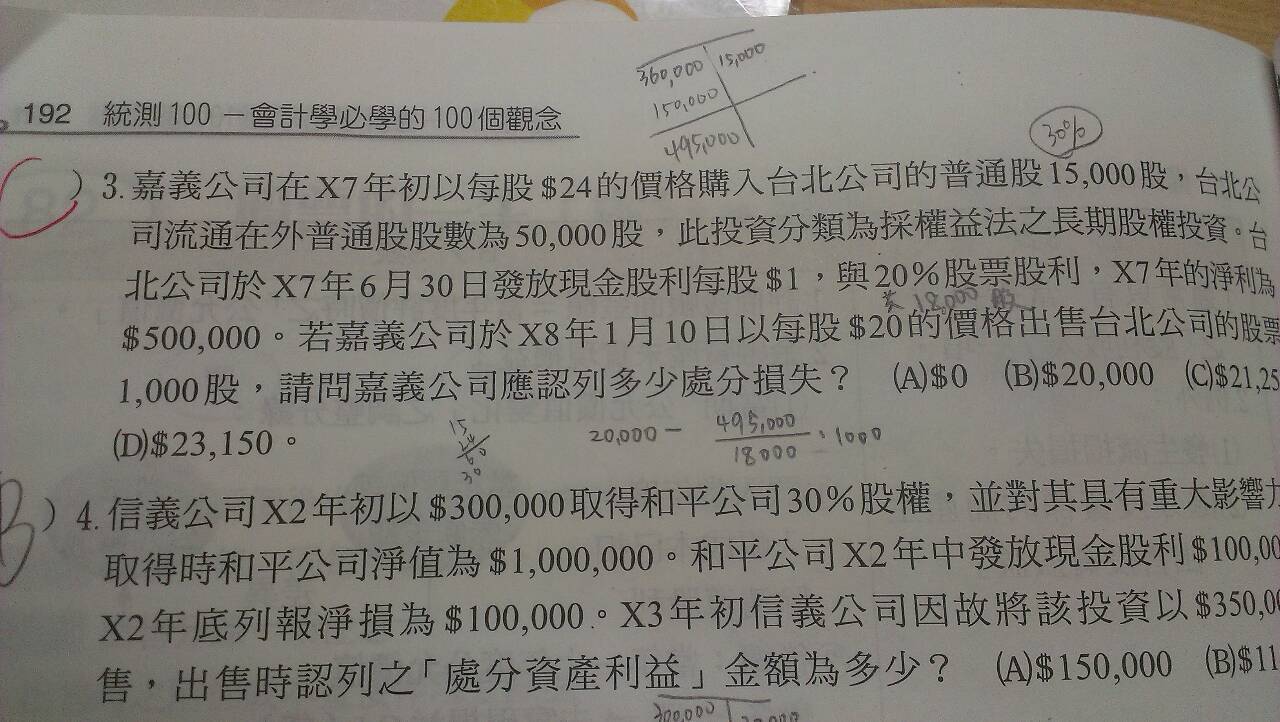 360,000 15,000
150,000
495,000
192 統測 100 －會計學必學的 100 個觀念
30%
) 3. 嘉義公司在 X7 年初以每股 $24 的價格購入台北公司的普通股 15,000 股，台北公
司流通在外普通股股數為 50,000 股，此投資分類為採權益法之長期股權投資。台
北公司於 X7 年 6 月 30 日發放現金股利每股 $1，與 20% 股票股利，X7 年的淨利為
18,000 股
$500,000。若嘉義公司於 X8 年 1 月 10 日以每股 $20 的價格出售台北公司的股票
1,000 股，請問嘉義公司應認列多少處分損失？ (A)$0 (B)$20,000 (C)$21,25
(D)$23,150。
20,000 － 495,000
18000 · 1000
B ) 4. 信義公司 X2 年初以 $300,000 取得和平公司 30% 股權，並對其具有重大影響力
取得時和平公司淨值為 $1,000,000。和平公司 X2 年中發放現金股利 $100,00
X2 年底列報淨損為 $100,000。X3 年初信義公司因故將該投資以 $350,00
售，出售時認列之「處分資產利益」金額為多少？ (A)$150,000 (B)$11
300,000